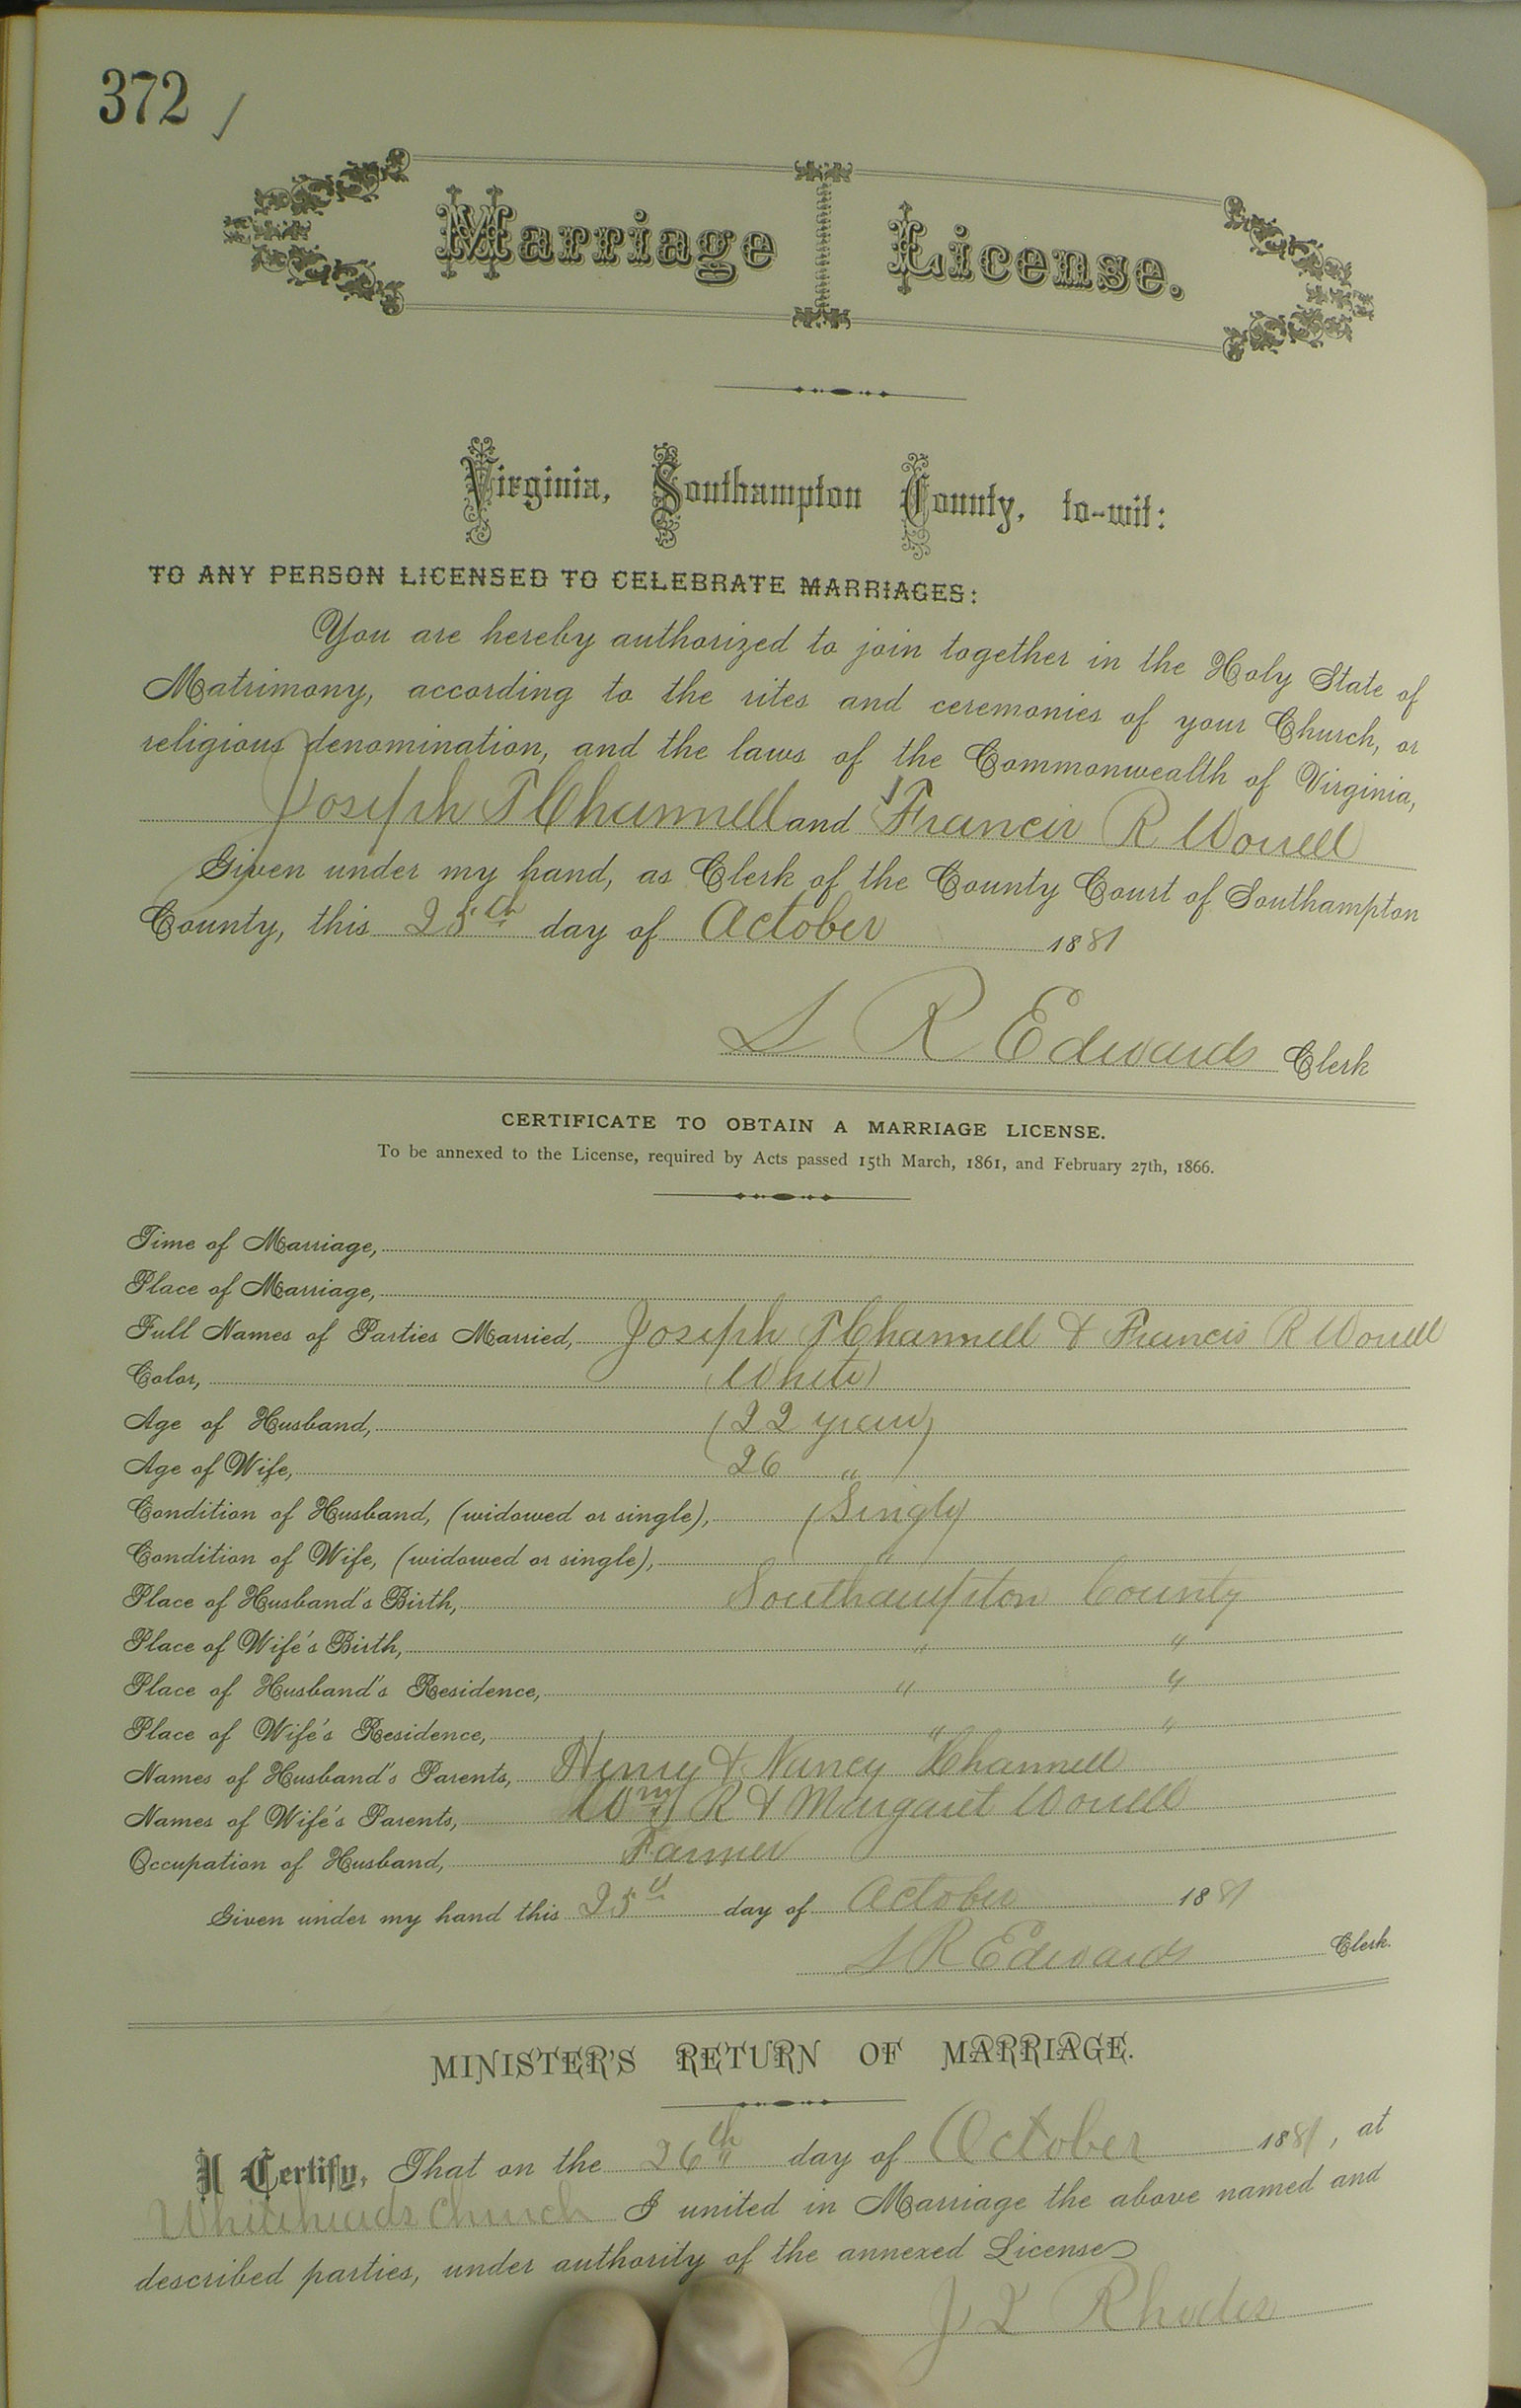 372
Marriage License.
Virginia, Southampton County, to-wit:
TO ANY PERSON LICENSED TO CELEBRATE MARRIAGES:
You are hereby authorized to join together in the Holy State of
Matrimony, according to the rites and ceremonies of your Church, or
religious denomination, and the laws of the Commonwealth of Virginia,
Joseph T Channell and Francis R Worrell
Given under my hand, as Clerk of the County Court of Southampton
County, this 25th day of October 1881
L R Edwards Clerk
CERTIFICATE TO OBTAIN A MARRIAGE LICENSE.
To be annexed to the License, required by Acts passed 15th March, 1861, and February 27th, 1866.
Time of Marriage,
Place of Marriage,
Full Names of Parties Married, Joseph T Channell & Francis R Worrell
Color, (White)
Age of Husband, (22 years)
Age of Wife, 26 "
Condition of Husband, (widowed or single), (Single)
Condition of Wife, (widowed or single), "
Place of Husband's Birth, Southampton County
Place of Wife's Birth, " "
Place of Husband's Residence, " "
Place of Wife's Residence, " "
Names of Husband's Parents, Henry & Nancy Channell
Names of Wife's Parents, Wm R & Margaret Worrell
Occupation of Husband, Farmer
Given under my hand this 25th day of October 1881
L R Edwards Clerk.
MINISTER'S RETURN OF MARRIAGE.
I Certify, That on the 26th day of October 1881, at
Whiteheads Church I united in Marriage the above named and
described parties, under authority of the annexed License
Rhodes